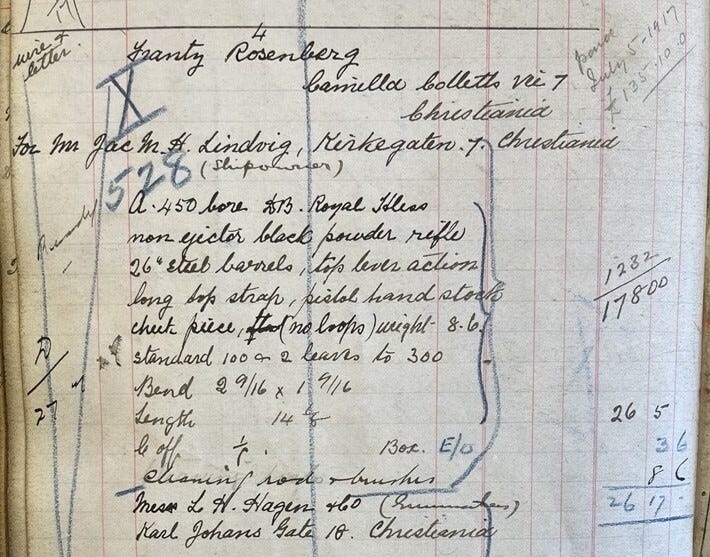 17
4
wire &
letter.
Frantz Rosenberg
Camilla Colletts vei 7
Christiania
July 5-1917
£ 135-10.0
IX
For Mr Jac M. H. Lindvig, Kirkegaten 7. Christiania
(Shipowner)
528
A .450 bore DB. Royal Hless
non ejector black powder rifle
26" steel barrels, top lever action
long top strap, pistol hand stock
cheek piece, (no loops) weight 8.6.
standard 100 & 2 leaves to 300
Bend 2 9/16 x 1 9/16
Length 14
C off Box. E/O
cleaning rod & brushes
Messr L. H. Hagen & Co (Gunmakers)
Karl Johans Gate 18. Christiania
1232
17800
27
26 5
3 6
8 6
26 17 -